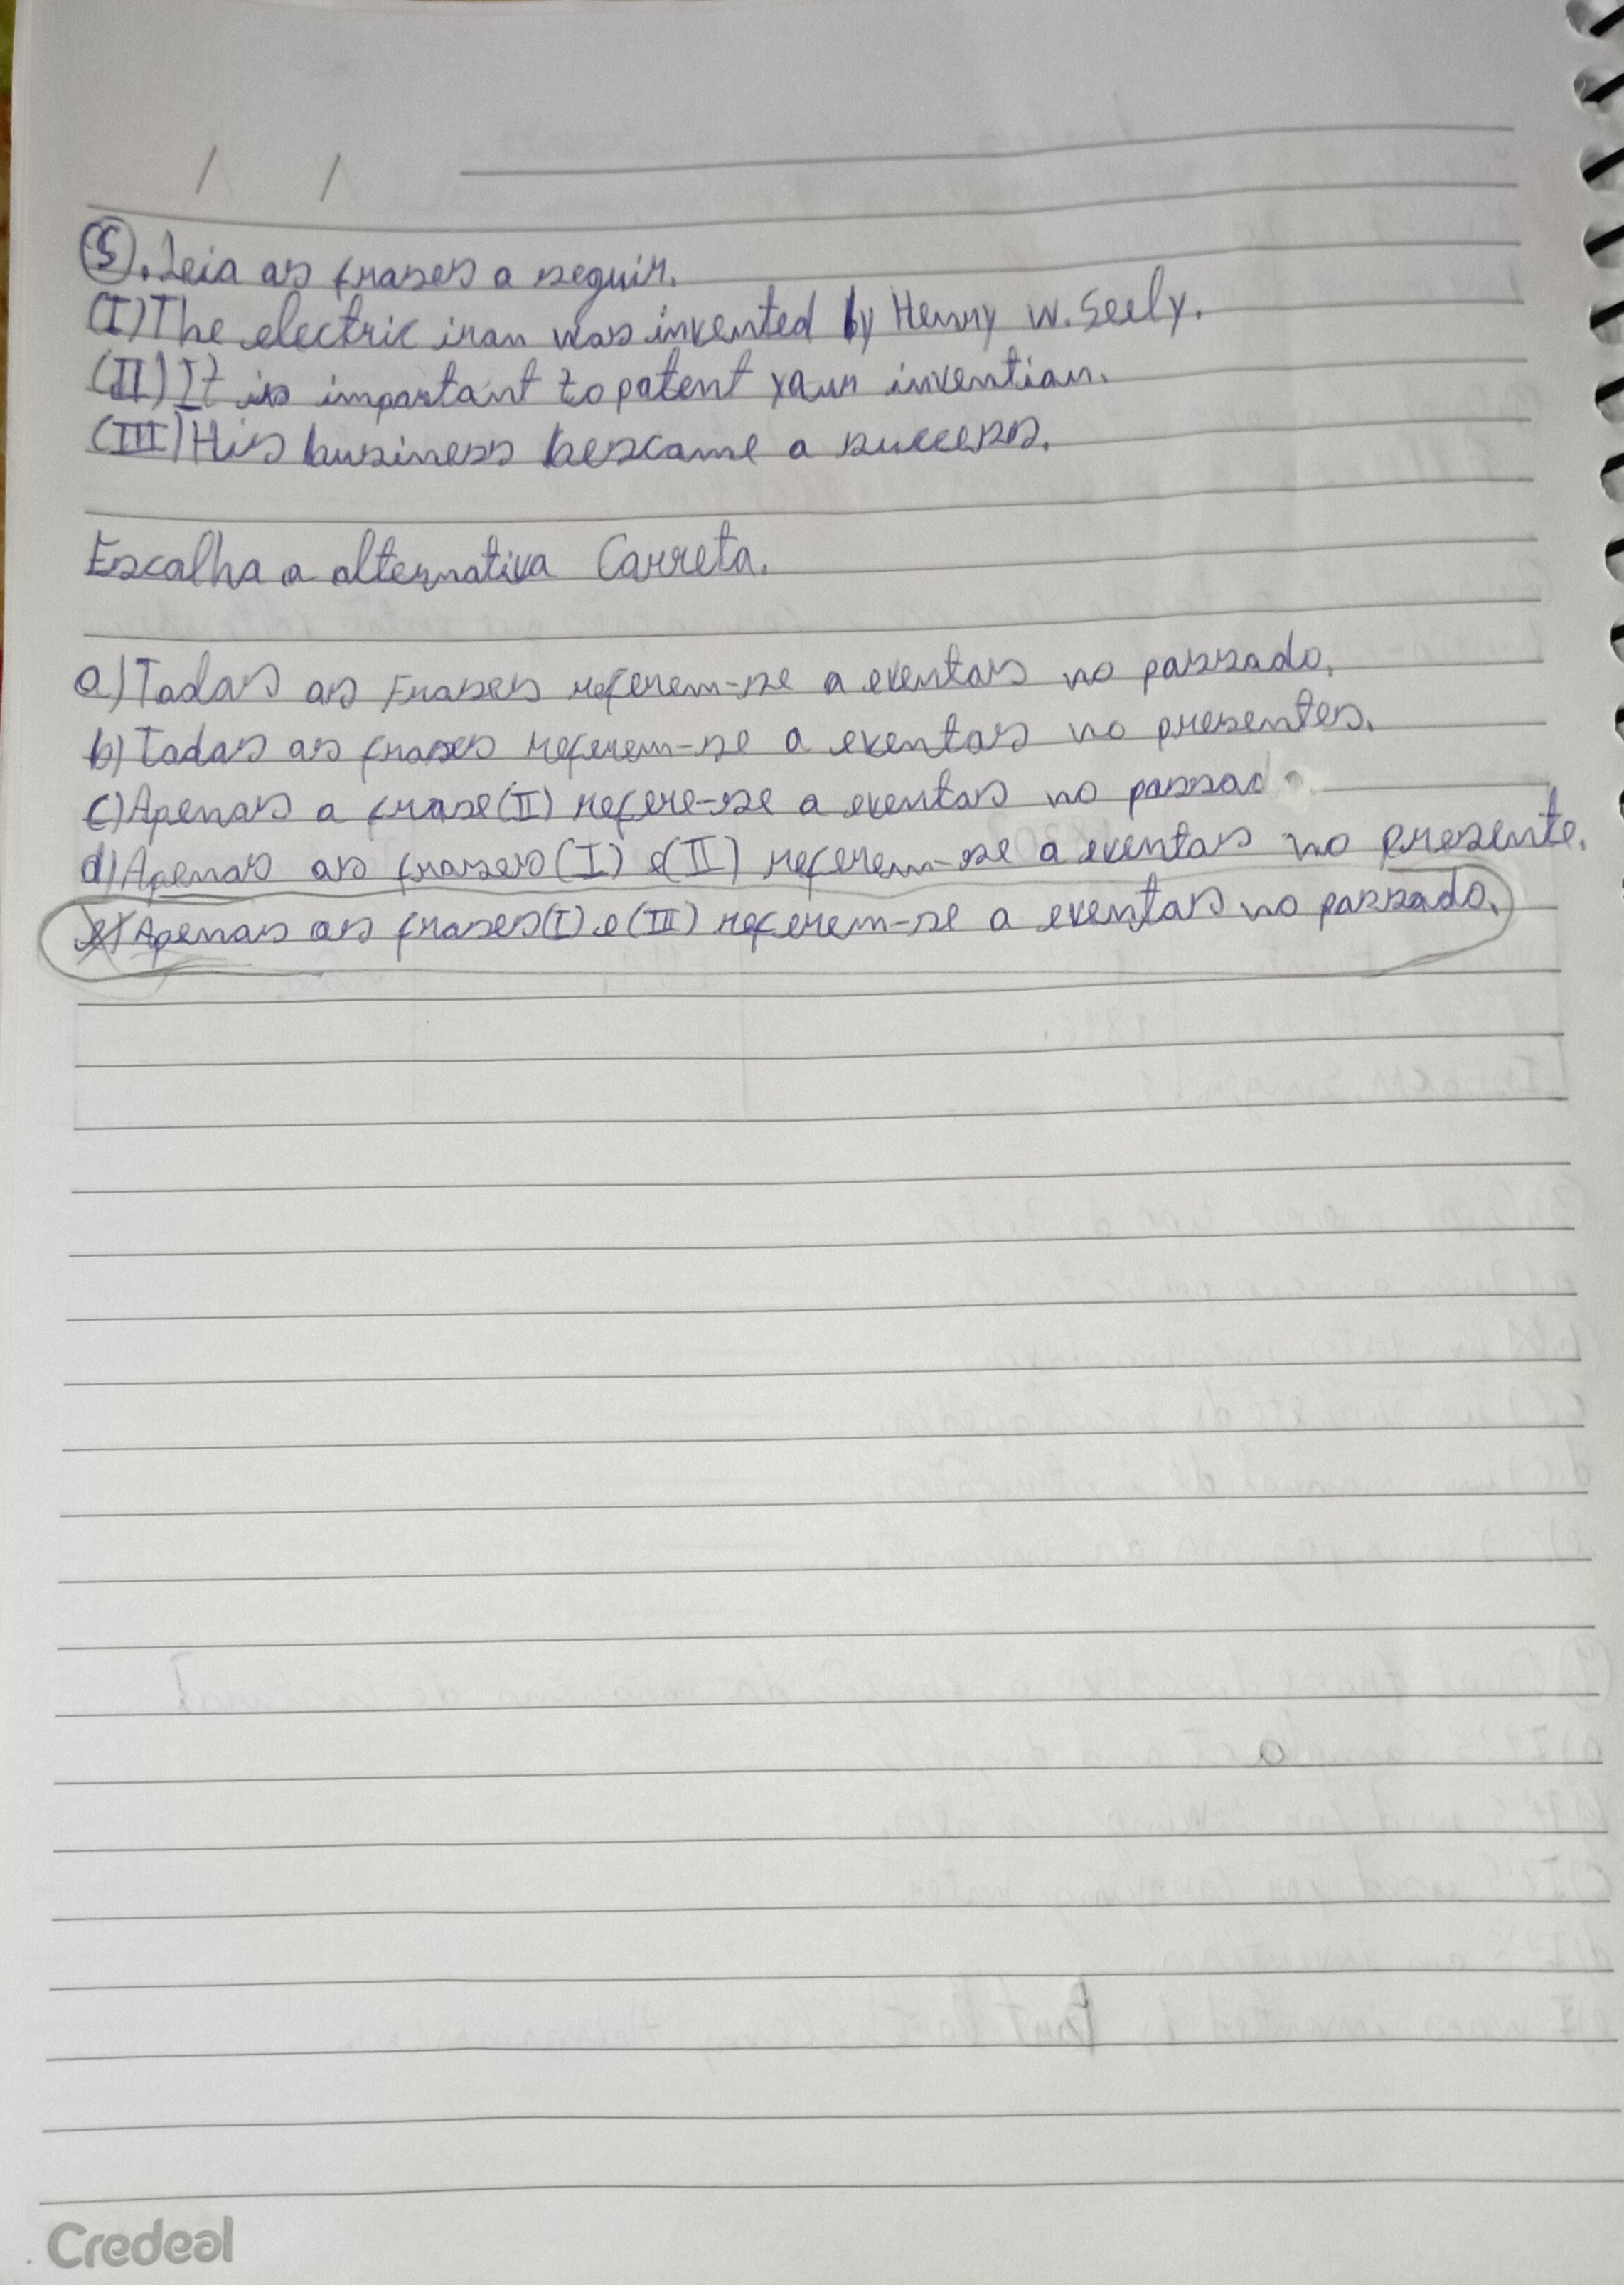 / /
5. Leia as frases a seguir.
(I) The electric iron was invented by Henry W. Seely.
(II) It is important to patent your invention.
(III) His business bescame a success.
Escolha a alternativa Correta.
a) Todas as Frases referem-se a eventos no passado.
b) Todas as frases referem-se a eventos no presentes.
c) Apenas a frase (II) refere-se a eventos no passado
d) Apenas as frases (I) e (II) referem-se a eventos no presente.
e) Apenas as frases (I) e (III) referem-se a eventos no passado.
Credeal